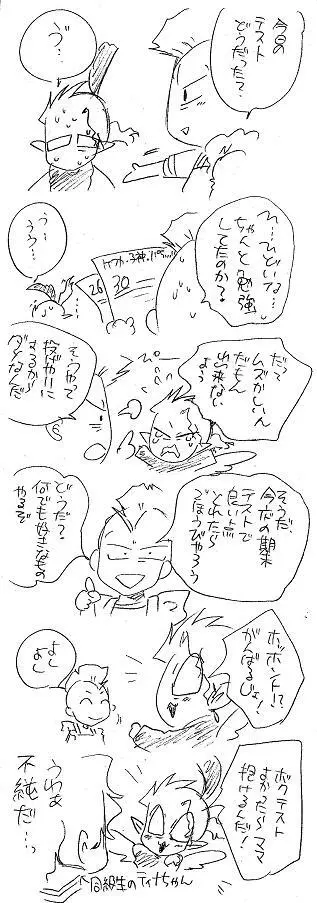 今日の
テスト
どうだった?
う"…
ひ…ひどいな…
ちゃんと勉強
してたのか?
う…
うう…
26
30
だって
ムズかしいん
だもん
出来ない
よう
そうやって
投げやりに
するから
ダメなんだ
そうだ
今度の期末
テストで
良い点
とれたら
ごほうびやろう
どうだ?
何でも好きなもの
やるぞ
ホッホント!?
がんばるじょ!
よし
よし
ボクテスト
すかったらママ
抱けるんだ!
うわぁ
不純だ…っ
↑同級生のティナちゃん